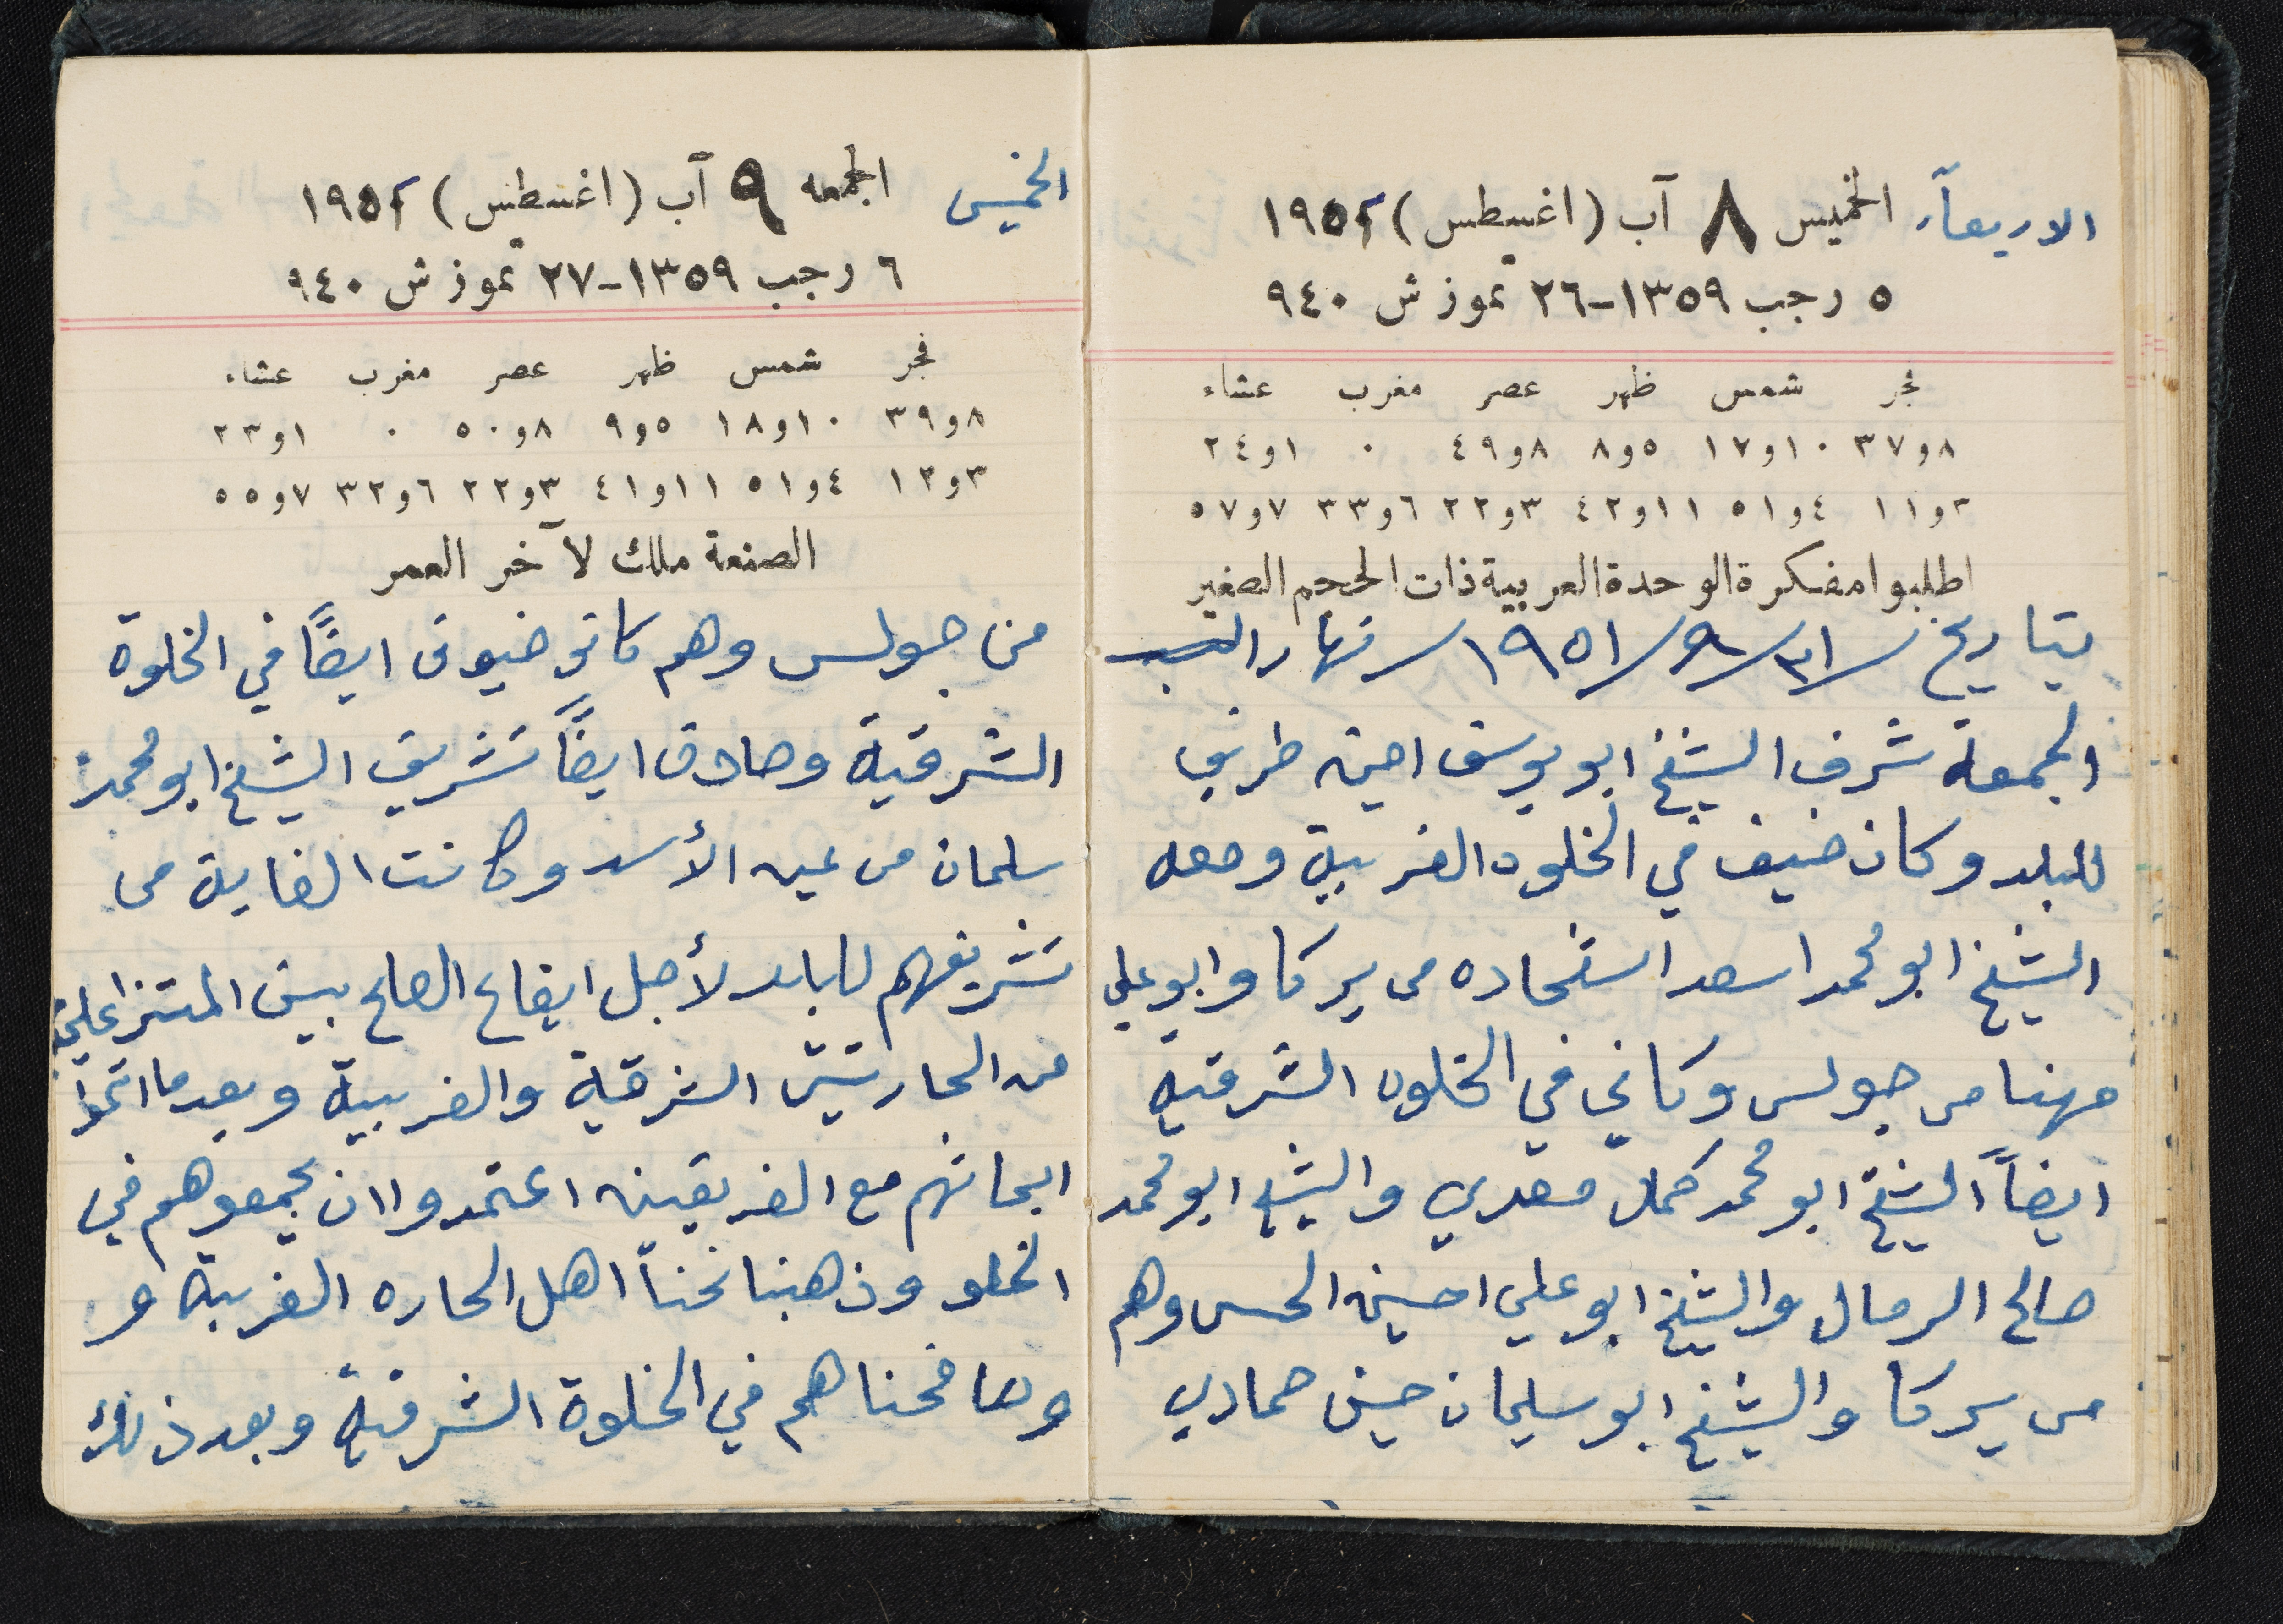 الاربعاء الخميس ٨ آب (اغسطس) ١٩٥١
٥ رجب ١٣٥٩-٢٦ تموز ش ٩٤٠
فجر شمس ظهر عصر مغرب عشاء
٨و٣٧ ١٠و١٧ ٥و٨ ٨و٤٩ ٠ ١و٢٤
٣و١١ ٤و٥١ ١١و٤٢ ٣و٢٢ ٦و٣٣ ٧و٥٧
اطلبوا مفكرة الوحدة العربية ذات الحجم الصغير
بتاريخ ٣١/٨/١٩٥١/ نهار
الجمعة شرف الشيخ ابو يوسف امين طريف
للبلد وكان ضيف في الخلوه الغربية ومعه
الشيخ ابو محمد اسعد استحاده من يركا وابو علي
مهنا من جولس وكاني في الخلوه الشرقية
ايضاً الشيخ ابو محمد كمال معدي والشيخ ابو محمد
صالح الرمال والشيخ ابو علي احسين الحسن وهم
من يركا والشيخ ابو سليمان حسين حمادي
الخميس الجمعه ٩ آب (اغسطس) ١٩٥١
٦ رجب ١٣٥٩-٢٧ تموز ش ٩٤٠
فجر شمس ظهر عصر مغرب عشاء
٨و٣٩ ١٠و١٨ ٥و٩ ٨و٥٠ ٠ ١و٢٣
٣و١٢ ٤و٥١ ١١و٤١ ٣و٢٢ ٦و٣٢ ٧و٥٥
الصنعة ملك لآخر العمر
من جولس وهم كانو ضيوف ايضاً في الخلوة
الشرقية وصادف ايضاً تشريف الشيخ ابو محمد
سلمان من عين الأسد وكانت الغاية من
تشريفهم للبلد لأجل ايقاع الصلح بين المتنزاعلين
من الحارتين الشرقية والغربية وبعد ما اتموا
ابحاثهم مع الفريقين اعتمدوا ان يجمعوهم في
الخلو وذهبنا نحنا اهل الحاره الغربية و
وصافحناهم في الخلوة الشرقية وبعد ذلك